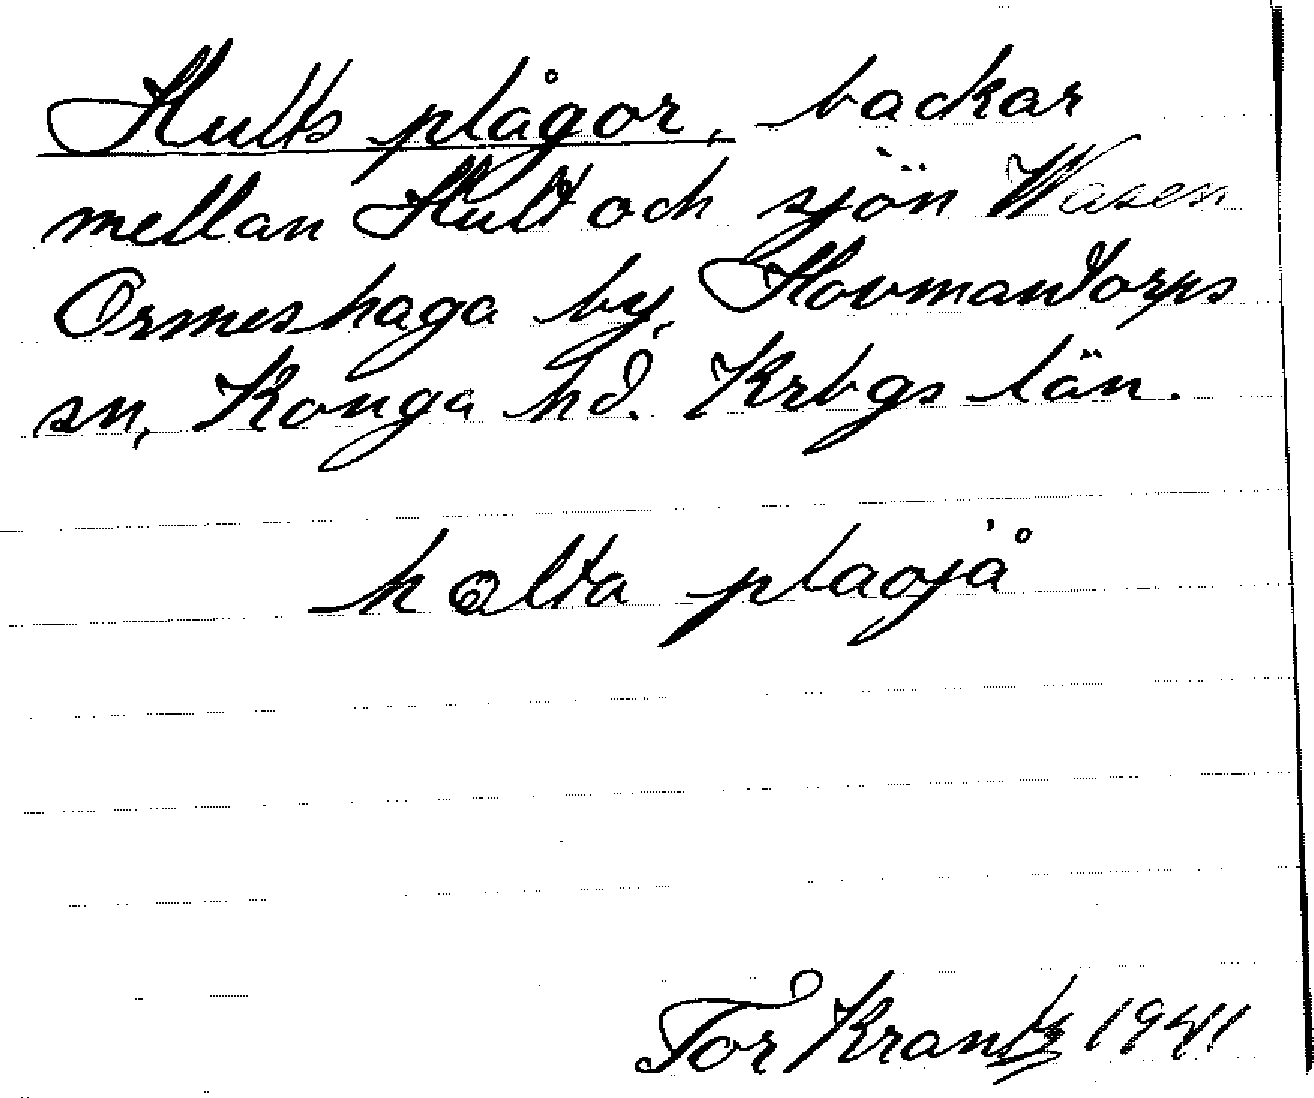 Hults plågor, backar
mellan Hult och sjön Wasen
Ormeshaga by, Hovmantorps
sn, Konga hd. Krbgs län.
holta plaojå
Tor Krantz 1941